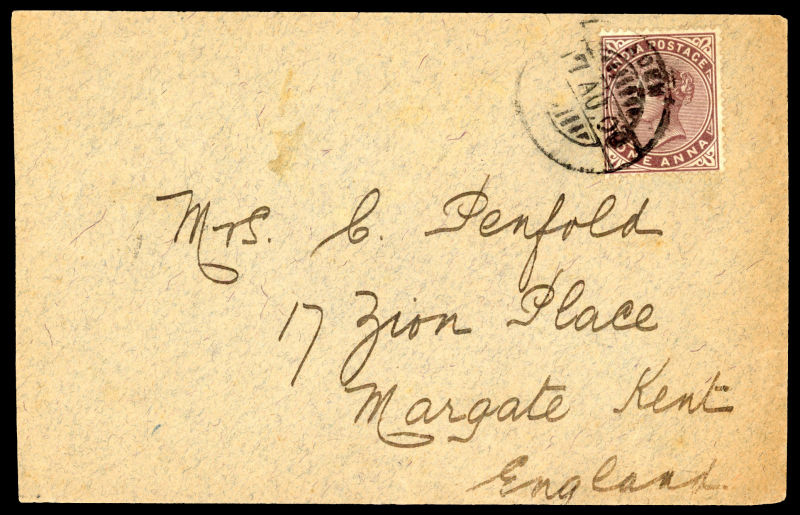 INDIA POSTAGE
ONE ANNA
17 AU. 00
Mrs. C. Penfold
17 Zion Place
Margate Kent
England.